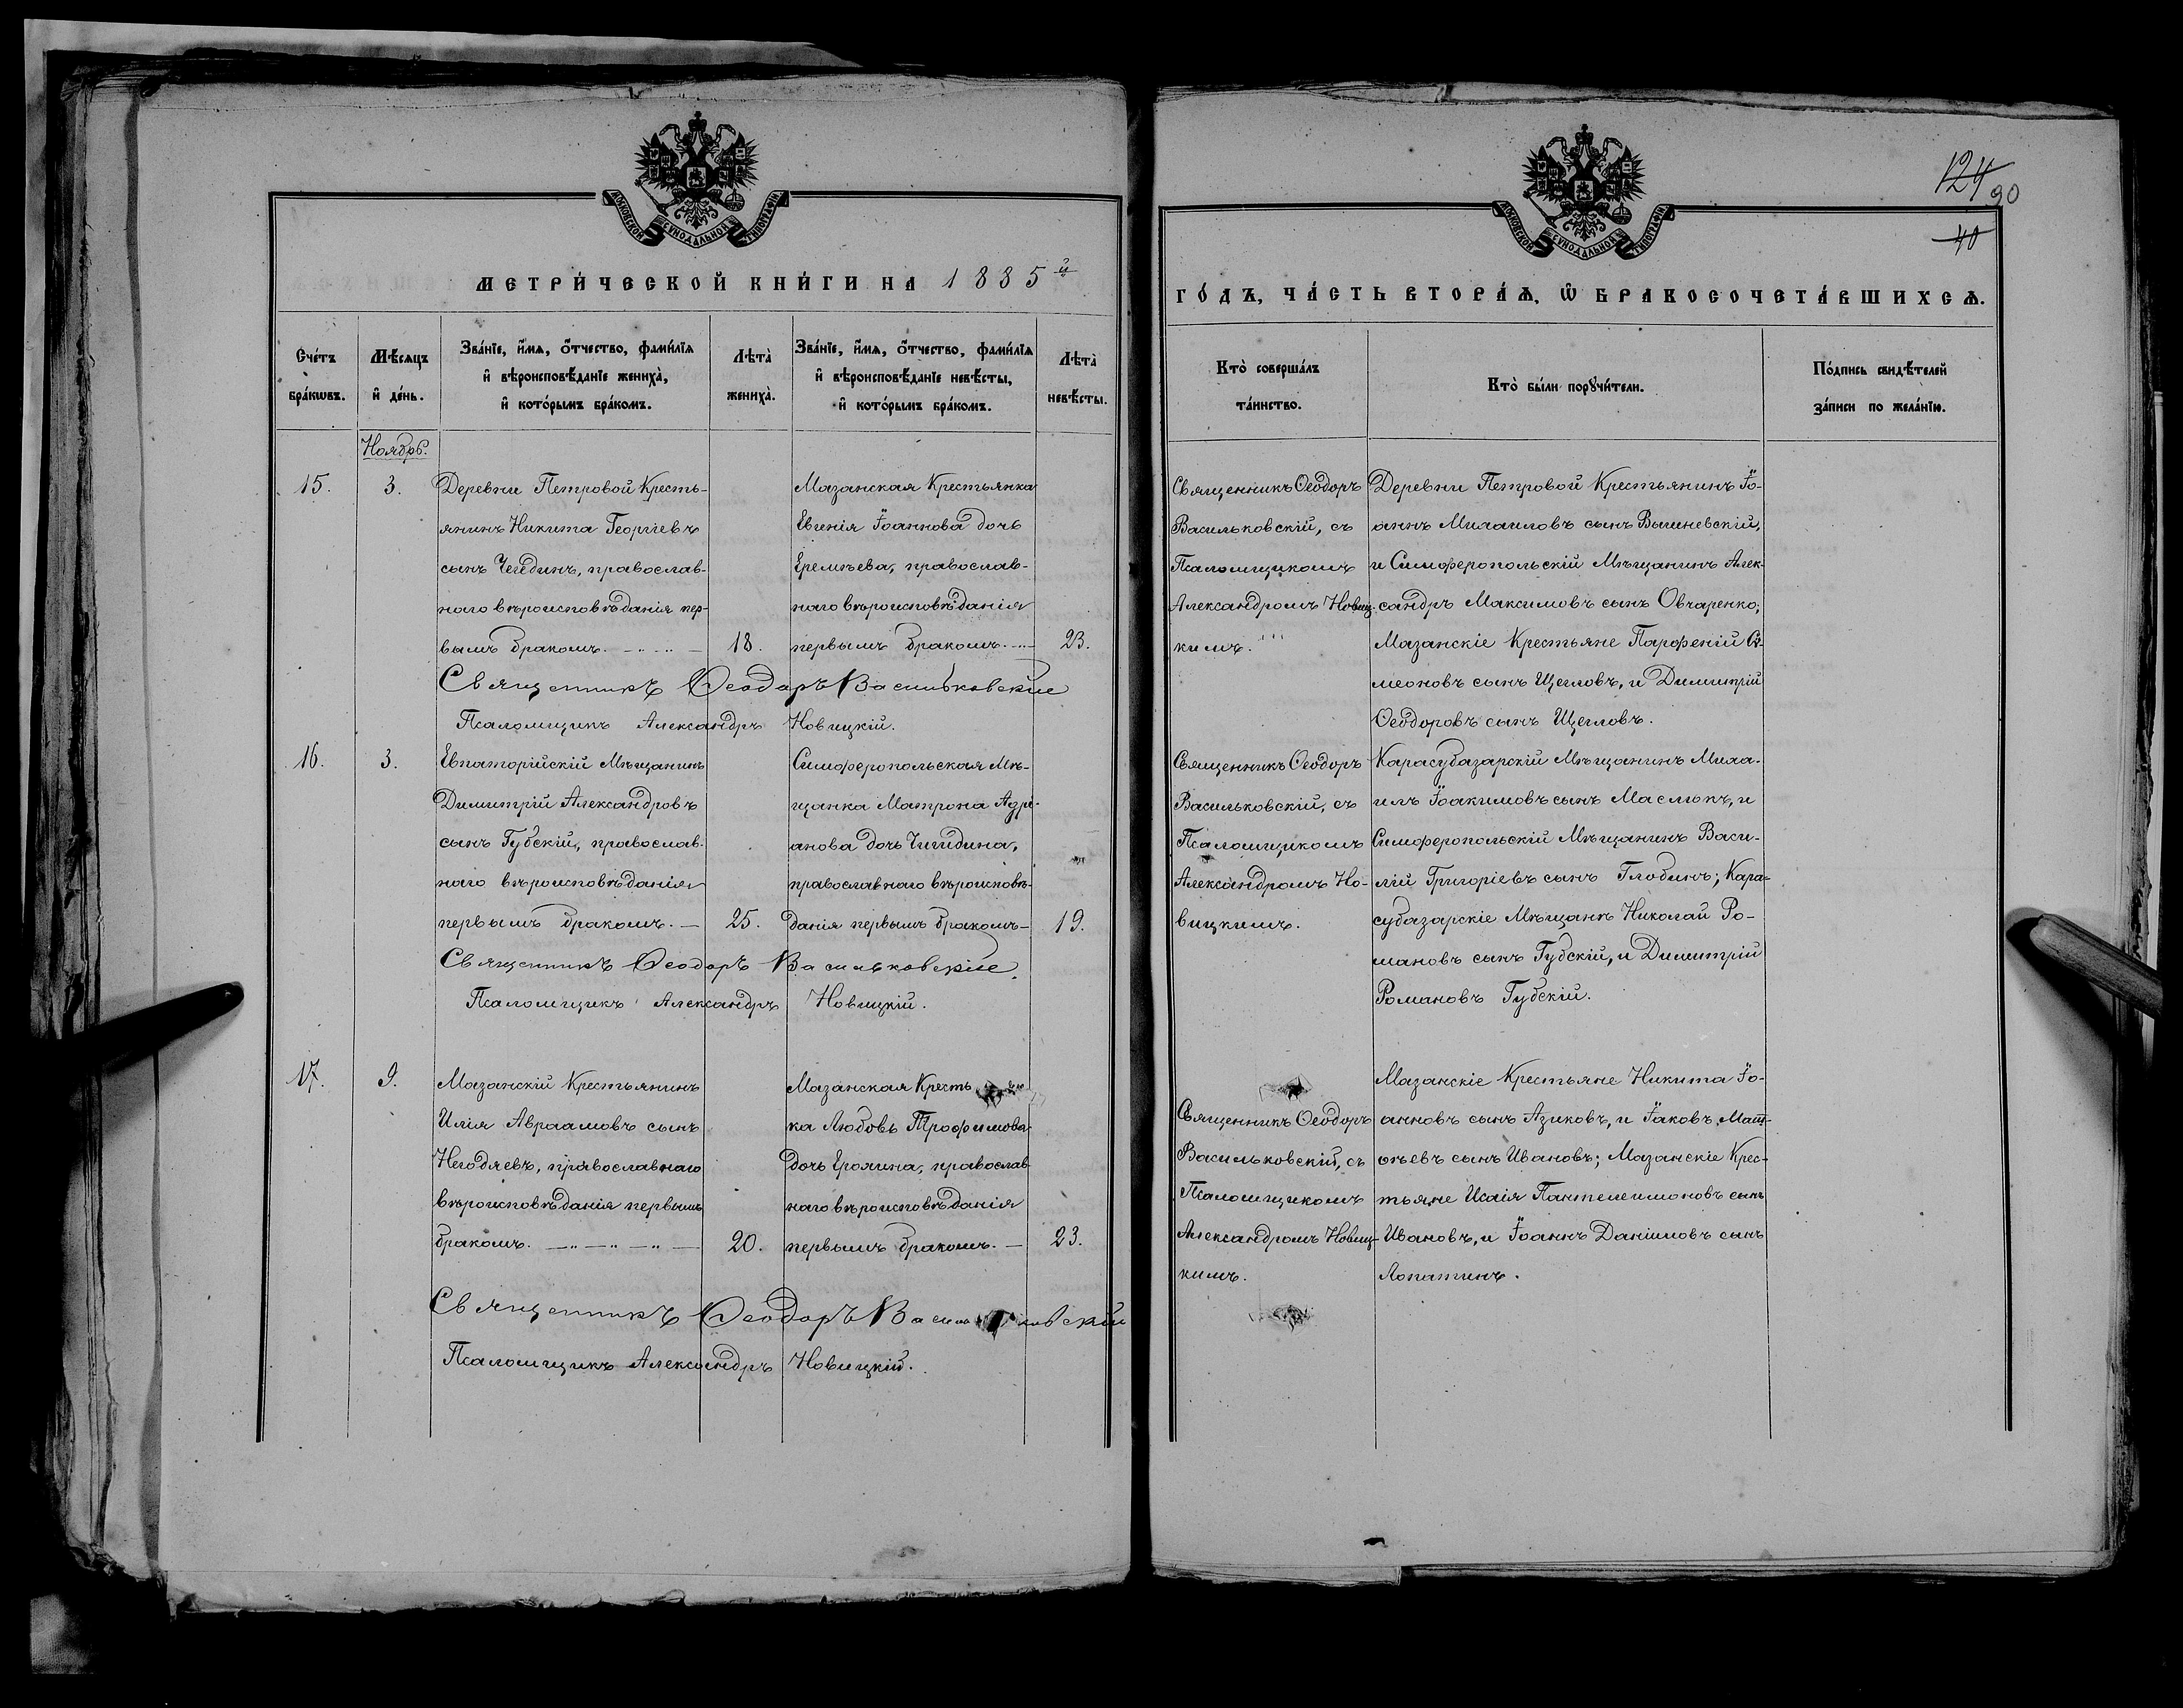 МОСКОВСКОЙ СѴНОДАЛЬНОЙ ТИПОГРАФІИ
МЕТРИ́ЧЕСКОЙ КНИ́ГИ НА 1885 й
Сче́тъ бра́кѡвъ.
Мѣ́сяцъ и҆ де́нь.
Зва́нїе, и҆́мѧ, ѻ҆́тчество, фами́лїѧ
и҆ вѣроисповѣ́данїе жениха̀,
и҆ кото́рымъ бра́комъ.
Лѣта̀ жениха̀.
Зва́нїе, и҆́мѧ, ѻ҆́тчество, фами́лїѧ
и҆ вѣроисповѣ́данїе невѣ́сты,
и҆ кото́рымъ бра́комъ.
Лѣта̀ невѣ́сты.
Ноябрь.
15.
3.
Деревни Петровой Кресть-
янинъ Никита Георгіевъ
сынъ Чегединъ, православ-
наго вѣроисповѣданія пер-
вымъ бракомъ.
18.
Мазанская Крестьянка
Евгенія Іоаннова дочь
Еремѣева, православ-
наго вѣроисповѣданія
первымъ бракомъ.
23.
Священникъ Ѳеодоръ Васильковскій
Псаломщикъ Александръ Новицкій.
16.
3.
Евпаторійскій Мѣщанинъ
Димитрій Александровъ
сынъ Губскій, православ-
наго вѣроисповѣданія
первымъ бракомъ. —
25.
Симферопольская Мѣ-
щанка Матрона Адрі-
анова дочь Чигидина,
православнаго вѣроисповѣ-
данія первымъ бракомъ —
19.
Священникъ Ѳеодоръ Васильковскій.
Псаломщикъ Александръ Новицкій.
17.
9.
Мазанскій Крестьянинъ
Илія Авраамовъ сынъ
Негодяевъ, православнаго
вѣроисповѣданія первымъ
бракомъ.
20.
Мазанская Кресть
ка Любовь Трофимова
дочь Ерохина, православ
наго вѣроисповѣданія
первымъ бракомъ. —
23.
Священникъ Ѳеодоръ Васильковскій
Псаломщикъ Александръ Новицкій.
124
90
40
МОСКОВСКОЙ СѴНОДАЛЬНОЙ ТИПОГРАФІИ
ГО́ДЪ, ЧА́СТЬ ВТОРА́Ѧ, Ѡ҆ БРАКОСОЧЕТА́ВШИХСѦ.
Кто̀ соверша́лъ
та́инство.
Кто̀ бы́ли порꙋчи́тели.
По́дпись свидѣ́телей
за́писи по жела́нїю.
Священникъ Ѳеодоръ
Васильковскій, съ
Псаломщикомъ
Александромъ Новиц-
кимъ.
Деревни Петровой Крестьянинъ Іо-
аннъ Михаиловъ сынъ Вышневскій,
и Симферопольскій Мѣщанинъ Алек-
сандръ Максимовъ сынъ Овчаренко;
Мазанскіе Крестьяне Парфеній Си-
меоновъ сынъ Щегловъ, и Димитрій
Ѳеодоровъ сынъ Щегловъ.
Священникъ Ѳеодоръ
Васильковскій, съ
Псаломщикомъ
Александромъ Но-
вицкимъ.
Карасубазарскій Мѣщанинъ Миха-
илъ Іоакимовъ сынъ Маслюкъ, и
Симферопольскій Мѣщанинъ Васи-
лій Григоріевъ сынъ Глобинъ; Кара-
субазарскіе Мѣщанѣ Николай Ро-
мановъ сынъ Губскій, и Димитрій
Романовъ Губскій.
Священникъ Ѳеодоръ
Васильковскій, съ
Псаломщикомъ
Александромъ Новиц-
кимъ.
Мазанскіе Крестьяне Никита Іо-
анновъ сынъ Азиковъ, и Іаковъ Мат-
ѳѣевъ сынъ Ивановъ; Мазанскіе Крес-
тьяне Исаія Пантелеимоновъ сынъ
Ивановъ, и Іоаннъ Даніиловъ сынъ
Лопатинъ.